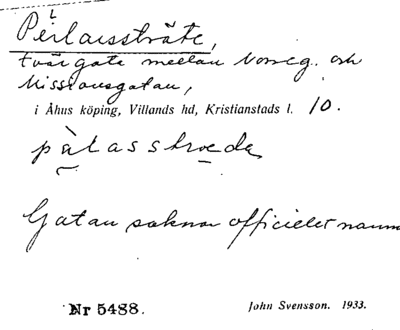 Perlassträte,
tvärgata mellan Norreg. och
Missionsgatan,
i Åhus köping, Villands hd, Kristianstads l. 10.
pàlasstræde
Gatan saknar officielet namn
Nr 5488.
John Svensson. 1933.